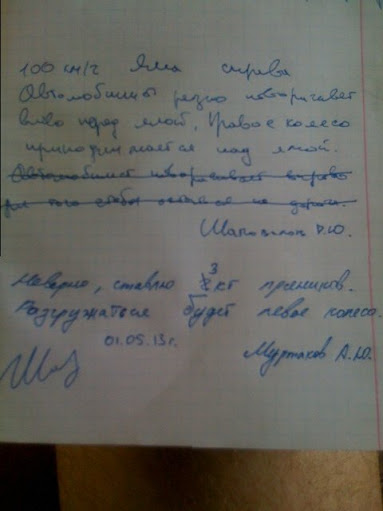 100 км/ч Яма справа
Автомобилист резко поворачивает
влево перед ямой. Правое колесо
приподнимается над ямой.
Автомобилист поворачивает вправо
для того чтобы остаться на дороге.
Ю.
Неверно, ставлю 3 кг пряников.
Разгружаться будет левое колесо.
01.05.13г.
Муртаков А.Ю.